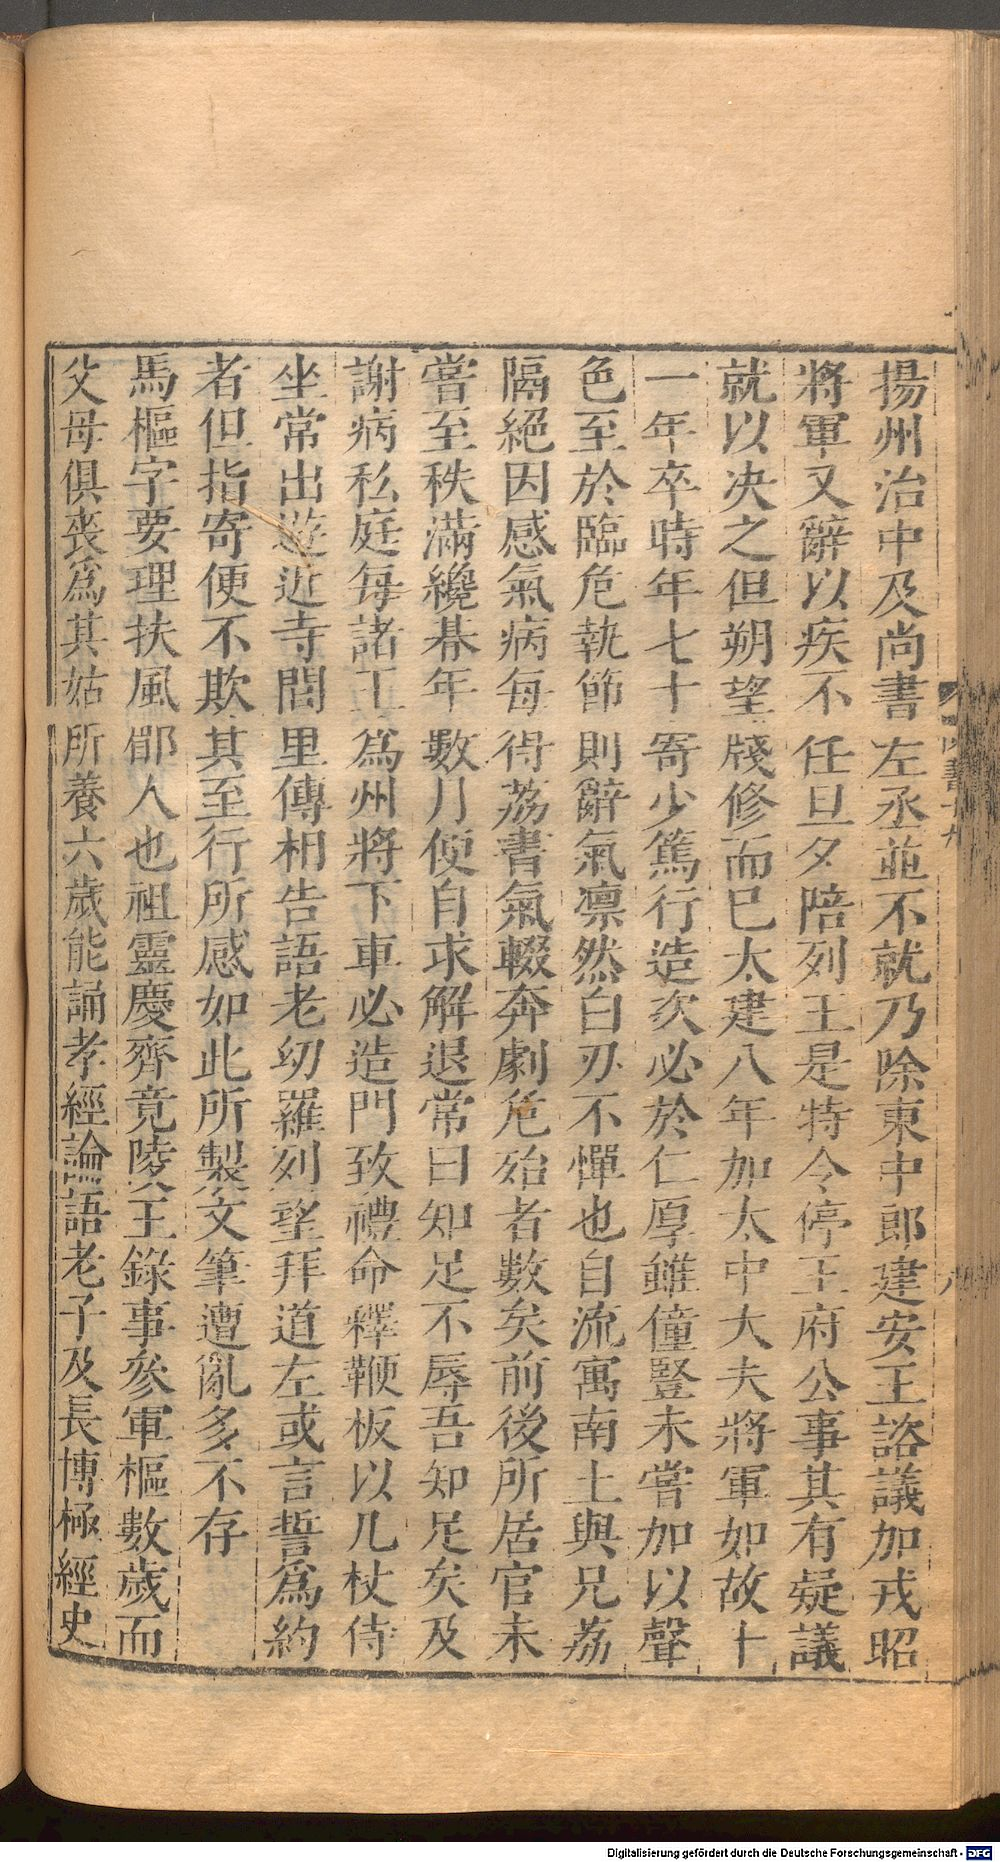 揚州治中及尚書左丞並不就乃除東中郎建安王諮議加戎昭
將軍又辭以疾不任旦夕陪列王是特令停王府公事其有疑議
就以决之但朔望牋修而已太建八年加太中大夫將軍如故十
一年卒時年七十寄少篤行造次必於仁厚雖僮豎未嘗加以聲
色至於臨危執節則辭氣凛然白刃不憚也自流寓南土與兄荔
隔絕因感氣病每得荔書氣輙奔劇危殆者數矣前後所居官未
嘗至秩滿纔朞年數月便自求解退常曰知足不辱吾知足矣及
謝病私庭每諸王爲州將下車必造門致禮命釋鞭板以几杖侍
坐常出遊近寺閭里傳相告語老幼羅列望拜道左或言誓爲約
者但指寄便不欺其至行所感如此所製文筆遭亂多不存
馬樞字要理扶風郿人也祖靈慶齊竟陵王錄事參軍樞數歲而
父母俱喪爲其姑所養六歲能誦孝經論語老子及長博極經史
Digitalisierung gefördert durch die Deutsche Forschungsgemeinschaft - DFG